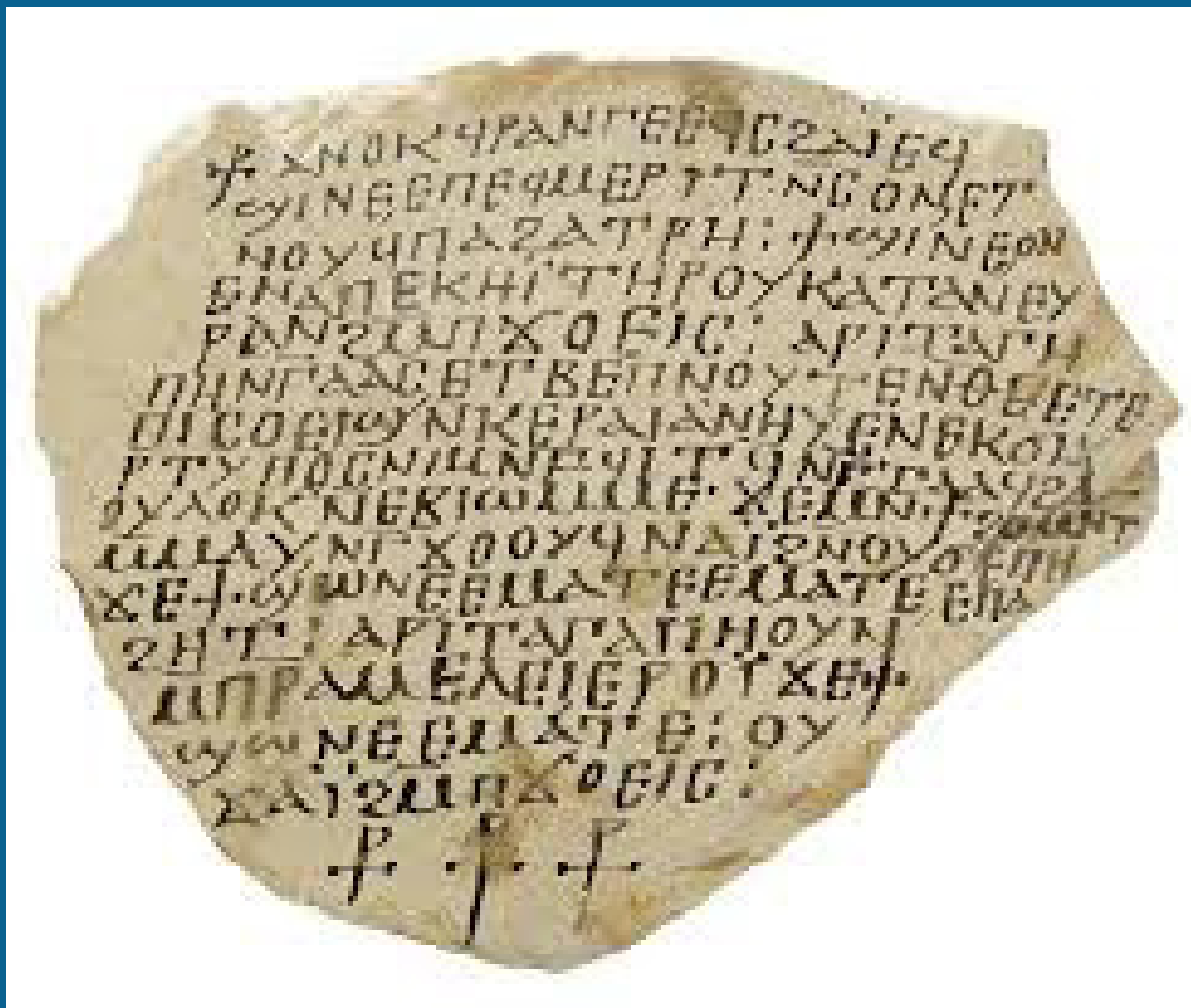 ⳨ ⲁⲛⲟⲕ ϥⲣⲁⲛⲅⲉ ⲉϥⲥϩⲁⲓ̈ ⲉϥ
ϣⲓⲛⲉ ⲉⲡⲉϥⲙⲉⲣⲓⲧ ⲛⲥⲟⲛ ⲉⲧ
ⲛⲟⲩϥ ⲡⲁϩⲁⲧⲣⲏ : ϯϣⲓⲛⲉ ⲟⲛ
ⲉⲛⲁⲡⲉⲕⲏⲓ ⲧⲏⲣⲟⲩ ⲕⲁⲧⲁ ⲛⲉⲩ
ⲣⲁⲛ ϩⲙ ⲡϫⲟⲉⲓⲥ : ⲁⲣⲓ ⲧⲁⲅⲁ
ⲡⲏ ⲛⲅⲁⲁⲥ ⲉⲧⲃⲉ ⲡⲛⲟⲩⲧⲉ ⲛⲑⲉ ⲉⲧⲉ
ⲛⲕⲉⲣⲁⲓⲁ ⲛⲏⲩ
ⲛⲓⲙ ⲛⲅϥⲓⲧϥ ⲛⲅⲧⲁⲁϥ ϩⲁ
ⲟⲩⲗⲟⲕ ⲛⲉⲃⲓⲱ ⲙⲙⲉ· ϫⲉ ⲙⲛϯ ϩⲟⲙⲛⲧ
ⲙⲙⲁⲩ ⲛⲅϫⲟⲟⲩϥ ⲛⲁⲓ̈ ϩⲛ ⲟⲩϭⲉⲡⲏ
ϫⲉ ϯϣⲱⲛⲉ ⲉⲙⲁⲧⲉ ⲉⲙⲁⲧⲉ ⲉⲡⲁ
ϩⲏⲧ : ⲁⲣⲓ ⲧⲁⲅⲁⲡⲏ ⲟⲩⲛ
ⲙⲡⲣⲁⲙⲉⲗⲉⲓ ⲉⲣⲟⲓ̈ ϫⲉ ϯ
ϣⲱⲛⲉ ⲉⲙⲁⲧⲉ : ⲟⲩ
ϫⲁⲓ̈ ϩⲙ ⲡϫⲟⲉⲓⲥ :
⳨ ⳨ ⳨